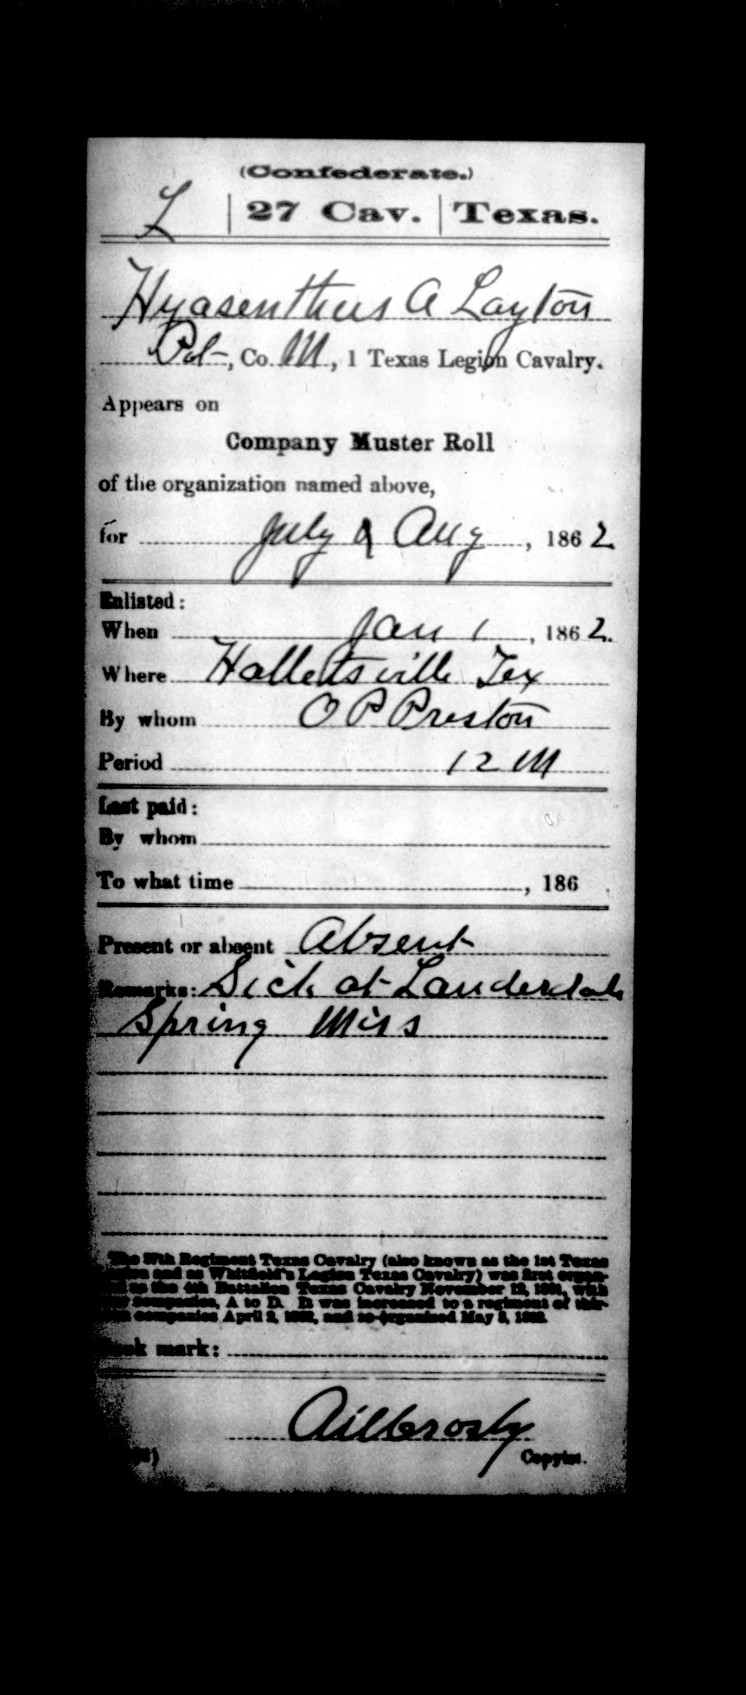 (Confederate.)
L | 27 Cav. | Texas.
Hyasenthus A Layton
Pvt, Co. M, 1 Texas Legion Cavalry.
Appears on
Company Muster Roll
of the organization named above,
for July & Aug, 1862
Enlisted:
When Jan 1, 1862.
Where Halletsville Tex
By whom O P Preston
Period 12 M
Last paid:
By whom
To what time, 186 .
Present or absent Absent
Remarks: Sick at Lauderdale
Spring Miss
The 27th Regiment Texas Cavalry (also known as the 1st Texas
Legion and as Whitfield's Legion Texas Cavalry) was first organ-
as the 4th Battalion Texas Cavalry November 13, 1861, with
companies, A to D. It was increased to a regiment of thir-
companies April 2, 1862, and re-organized May 8, 1862.
mark:
Copyist.